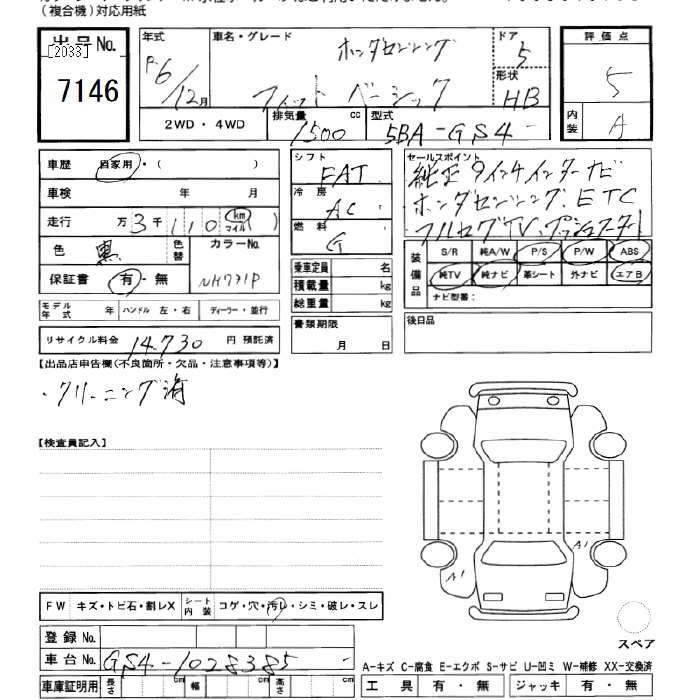 (複合機)対応用紙
出品No.
[2033]
7146
年式
R6/12月
車名・グレード
ホンダセンシング
フィット ベーシック
ドア
5
形状
HB
2WD・4WD
排気量
1500 cc
型式
5BA-GS4-
評価点
5
内装
A
車歴 自家用・( )
車検 年 月
走行 万3千110 km マイル
色 黒 色替
カラーNo.
保証書 有・無 NH731P
モデル年式 年 ハンドル 左・右 ディーラー・並行
リサイクル料金 14,730 円 預託済
シフト
FAT
冷房
AC
燃料
G
乗車定員 名
積載量 kg
総重量 kg
書類期限
月 日
セールスポイント
純正9インチインターナビ
ホンダセンシング、ETC
フルセグTV、プッシュスタート
装備品
S/R 純A/W P/S P/W ABS
純TV 純ナビ 革シート 外ナビ エアB
ナビ型番:
後日品
【出品店申告欄(不良箇所・欠品・注意事項等)】
・クリーニング済
【検査員記入】
A1
A1
FW キズ・トビ石・割レX シート内装 コゲ・穴・汚レ・シミ・破レ・スレ
スペア
登録No.
車台No. GS4-1028385-
A-キズ C-腐食 E-エクボ S-サビ U-凹ミ W-補修 XX-交換済
車庫証明用 長さ cm 幅 cm 高さ cm
工具 有・無 ジャッキ 有・無